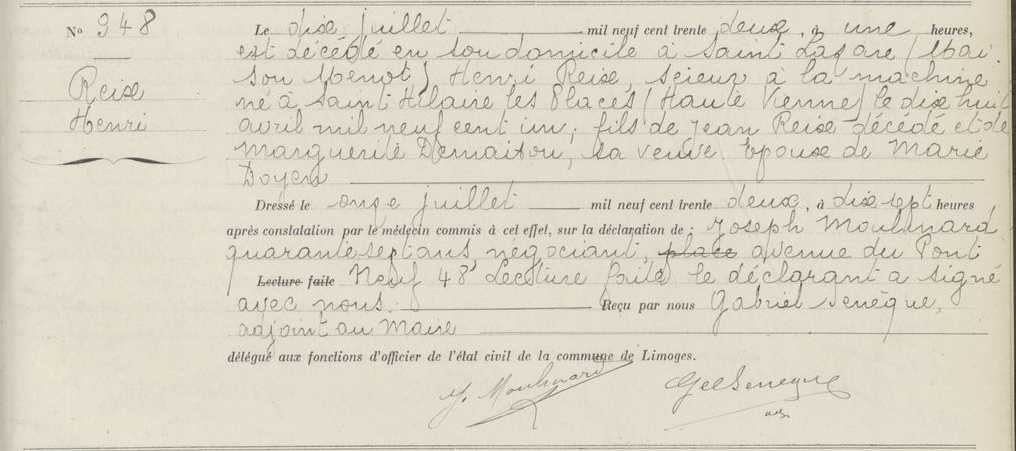 N° 948
Reix
Henri
Le dix juillet mil neuf cent trente deux, à une heures,
est décédé en son domicile à Saint Lazare (Mai
son Menot) Henri Reix, scieur à la machine
né à Saint Hilaire les Places (Haute Vienne) le dix huit
avril mil neuf cent un; fils de Jean Reix décédé et de
Marguerite Demaison, sa veuve Epoux de Marie
Doyen
Dressé le onze juillet mil neuf cent trente deux, à dix sept heures
après constatation par le médecin commis à cet effet, sur la déclaration de : Joseph Moulinard
quarante sept ans, négociant, place avenue du Pont
Lecture faite Neuf 48 Lecture faite le déclarant a signé
avec nous. Reçu par nous Gabriel Senèque,
adjoint au Maire
délégué aux fonctions d'officier de l'état civil de la commune de Limoges.
J. Moulinard Gel Seneque
adj.